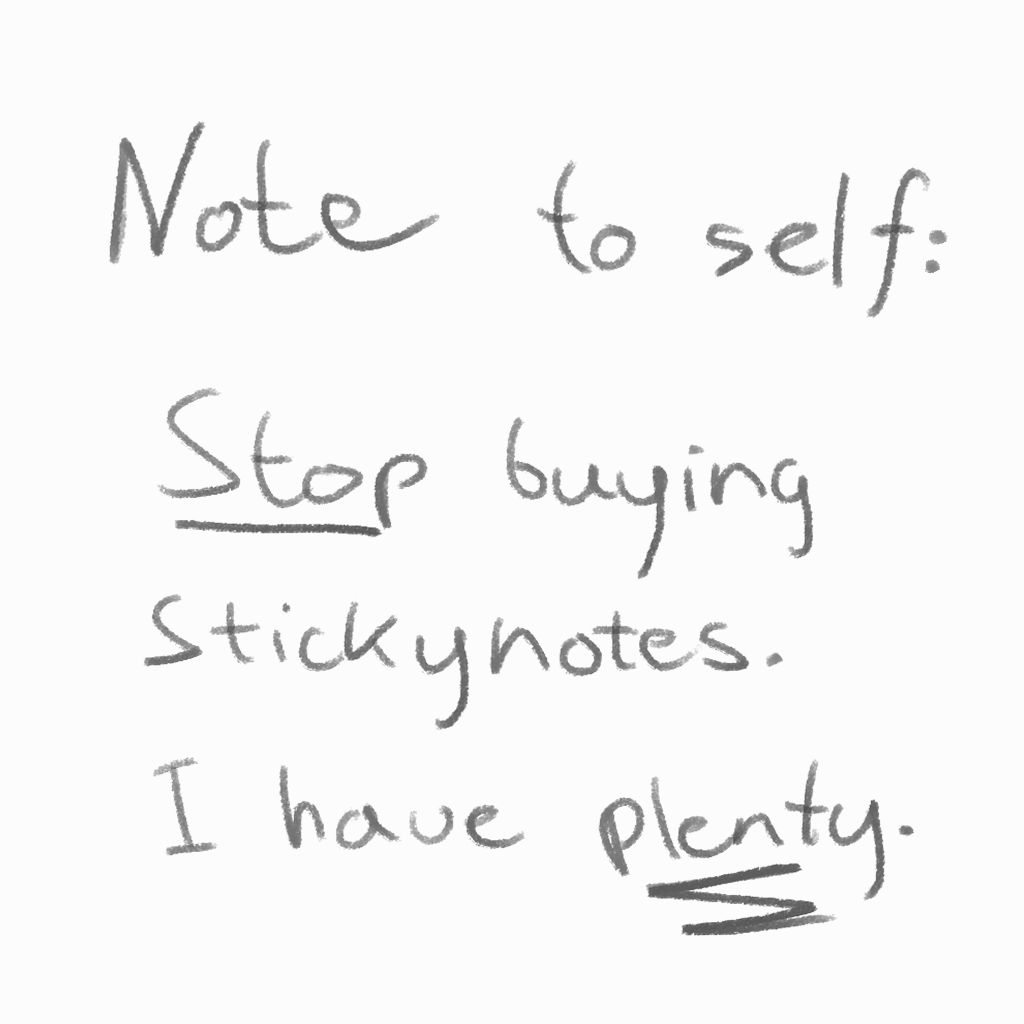 Note to self:
Stop buying
stickynotes.
I have plenty.